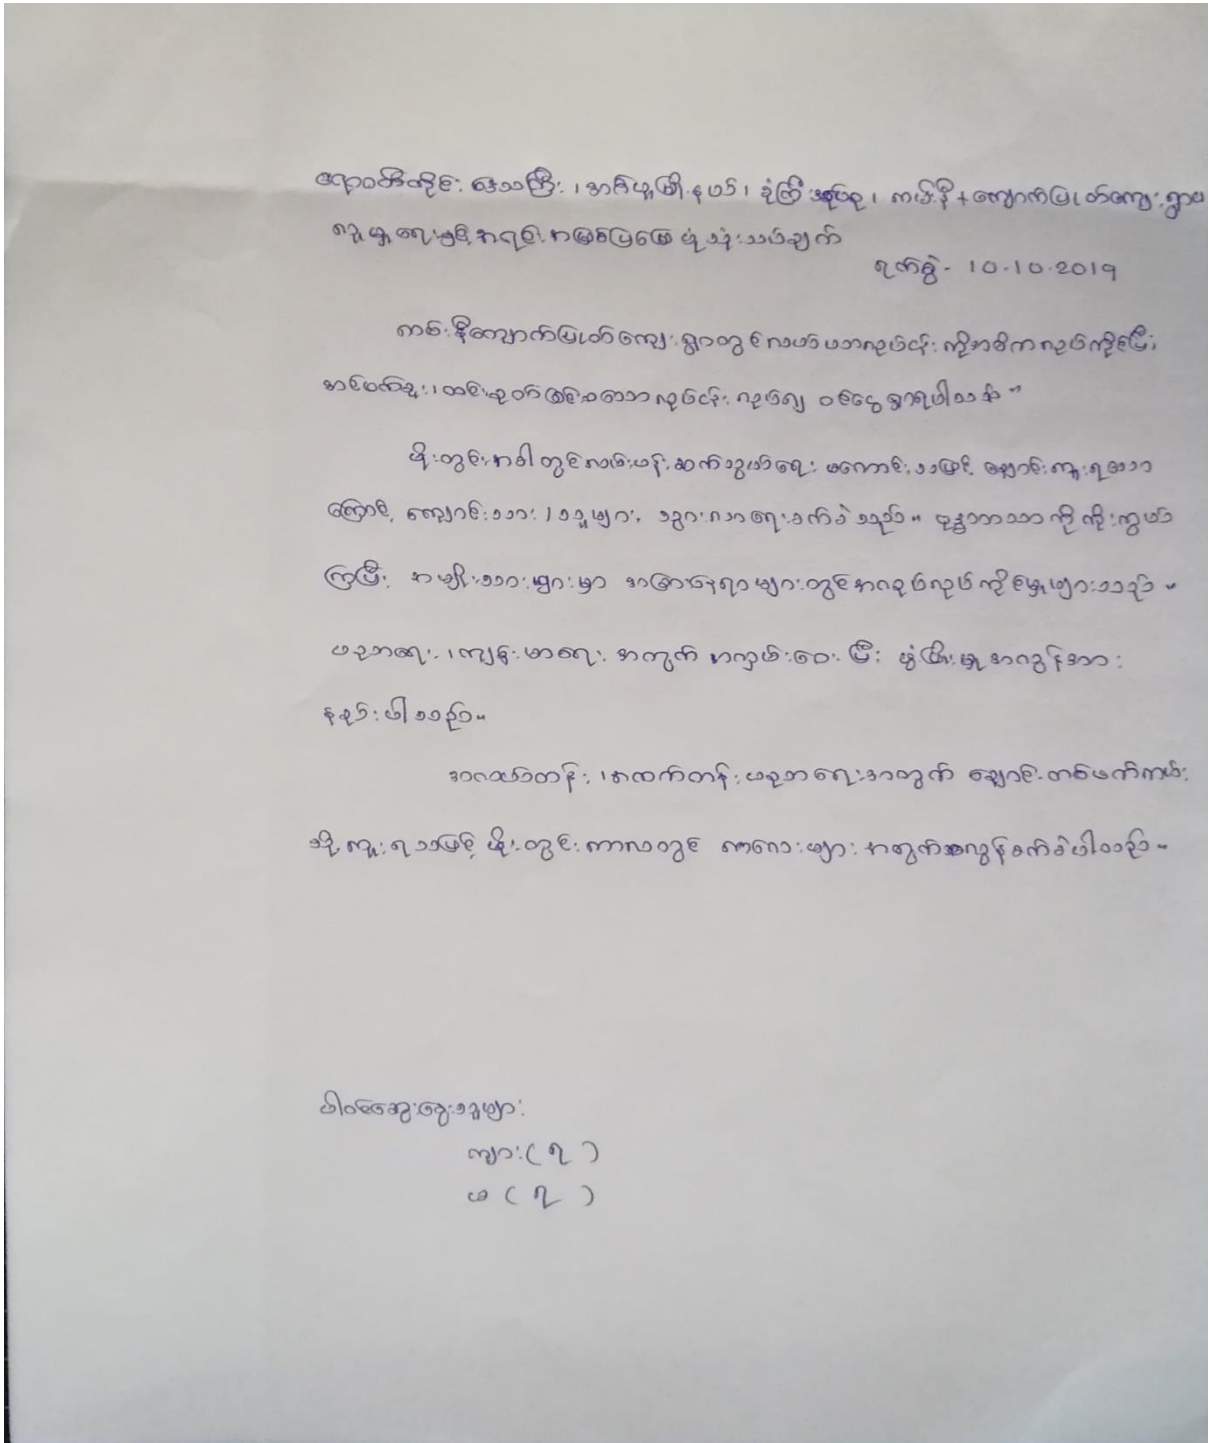 ဧရာဝတီတိုင်း ဒေသကြီး ၊ အင်္ဂပူမြို့နယ် ၊ ခုံကြီးအုပ်စု ၊ ကမ်းနီ + ကျောက်ပြုတ်ကျေးရွာမ
လူမှုရေးနှင့် အရင်းအမြစ်ပြမြေပုံသုံးသပ်ချက်
ရက်စွဲ - 10.10.2019
ကမ်းနီကျောက်ပြုတ်ကျေးရွာတွင် လယ်ယာလုပ်ငန်းကိုအဓိကလုပ်ကိုင်ပြီး
အင်ဖက်ခူး ၊ ထင်းခုတ်ခြင်းစသောလုပ်ငန်းလုပ်၍ ဝင်ငွေရှာရပါသည် ။
မိုးတွင်းအခါတွင်လမ်းပန်းဆက်သွယ်ရေး မကောင်းသဖြင့် ချောင်းကူးရသော
ကြောင့် ကျောင်းသား ၊ သူများ သွားလာရေးခက်ခဲသည် ။ ဗုဒ္ဓဘာသာကိုကိုးကွယ်
ကြပြီး အမျိုးသားများမှာ အခြားနေရာများတွင်အလုပ်လုပ်ကိုင်မှုများသည် ။
ပညာရေး ၊ ကျန်းမာရေး အတွက် အလှမ်းဝေးပြီး ဖွံ့ဖြိုးမှုအလွန်အား
နည်းပါသည် ။
အလယ်တန်း ၊ အထက်တန်းပညာရေးအတွက် ချောင်းတစ်ဖက်ကမ်း
သို့ကူးရသဖြင့် မိုးတွင်းကာလတွင် ကလေးများအတွက်အလွန်ခက်ခဲပါသည် ။
ပါဝင်ဆွေးနွေးသူများ
ကျား ( ၇ )
မ ( ၇ )